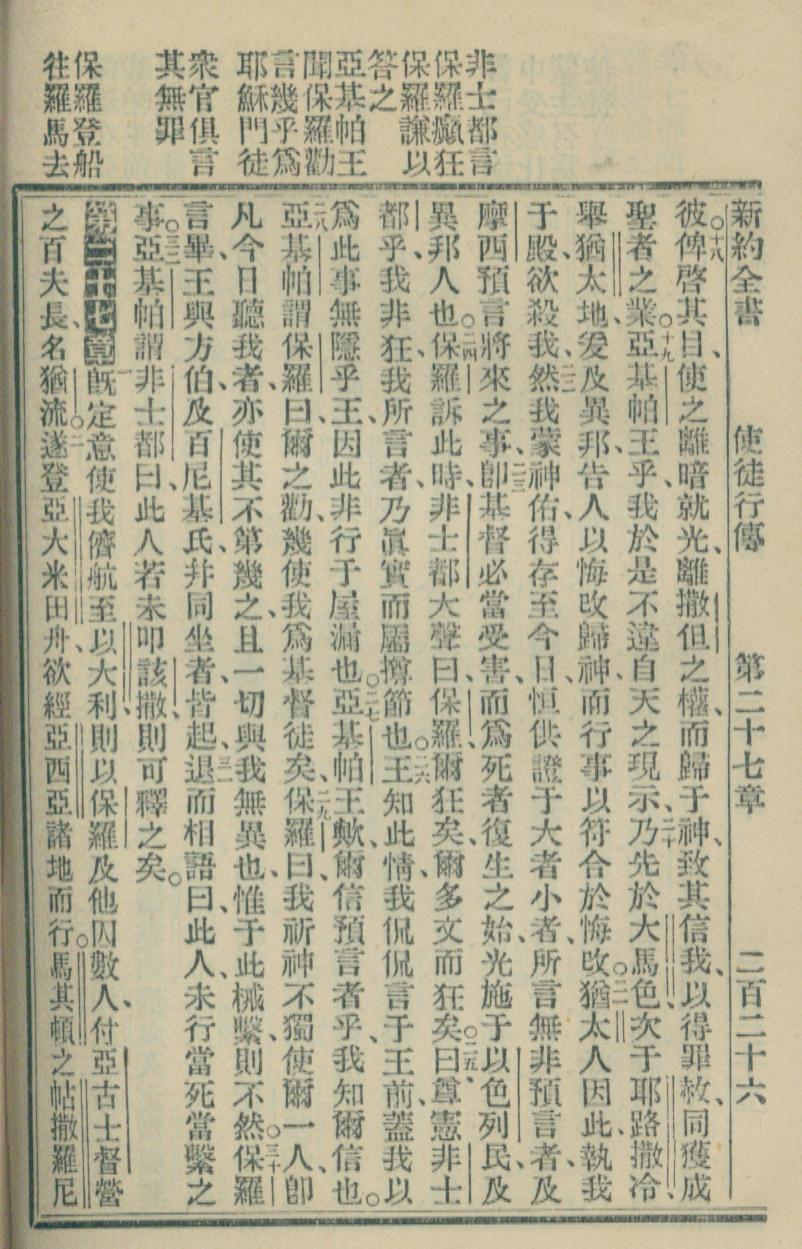 新約全書 使徒行傳 第二十七章 二百二十六
非士都言
保羅癲狂
保羅謙以
答之
亞基帕王
聞保羅勸
言幾乎爲
耶穌門徒
衆官俱言
其無罪
保羅登船
往羅馬去
○十八彼俾啓其目、使之離暗就光、離撒但之權、而歸于神、致其信我、以得罪赦、同獲成
聖者之業。○十九亞基帕王乎、我於是不違自天之現示、二十乃先於大馬色、次于耶路撒冷、
舉猶太地、爰及異邦、告人以悔改歸神、而行事以符合於悔改。○二一猶太人因此、執我
于殿、欲殺我、二二然我蒙神佑、得存至今日、恒供證于大者小者、所言無非預言者、及
摩西預言將來之事、二三卽基督必當受害、而爲死者復生之始、光施于以色列民、及
異邦人也。○二四保羅訴此時、非士都大聲曰、保羅、爾狂矣、爾多文而狂矣。○二五曰、尊憲非士
都乎、我非狂、我所言者、乃眞實而屬撙節也。○二六王知此情、我侃侃言于王前、蓋我以
爲此事無隱乎王、因此非行于屋漏也。○二七亞基帕王歟、爾信預言者乎、我知爾信也。
二八亞基帕謂保羅曰、爾之勸、幾使我爲基督徒矣、二九保羅曰、我祈神不獨使爾一人、卽
凡今日聽我者、亦使其不第幾之、且一切與我無異也、惟于此械繫、則不然。○三十保羅
言畢、王與方伯、及百尼基氏、幷同坐者、皆起、三一退而相語曰、此人、未行當死當繫之
事。○三二亞基帕謂非士都曰、此人若未叩該撒、則可釋之矣。
第二十七章 一旣定意使我儕航至以大利、則以保羅及他囚數人、付亞古士督營
之百夫長、名猶流。○二遂登亞大米田舟、欲經亞西亞諸地而行。馬其頓之帖撒羅尼